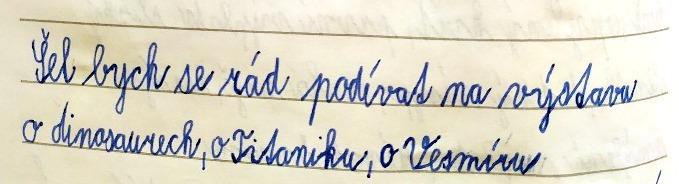 Šel bych se rád podívat na výstavu
o dinosaurech, o Titaniku, o Vesmíru